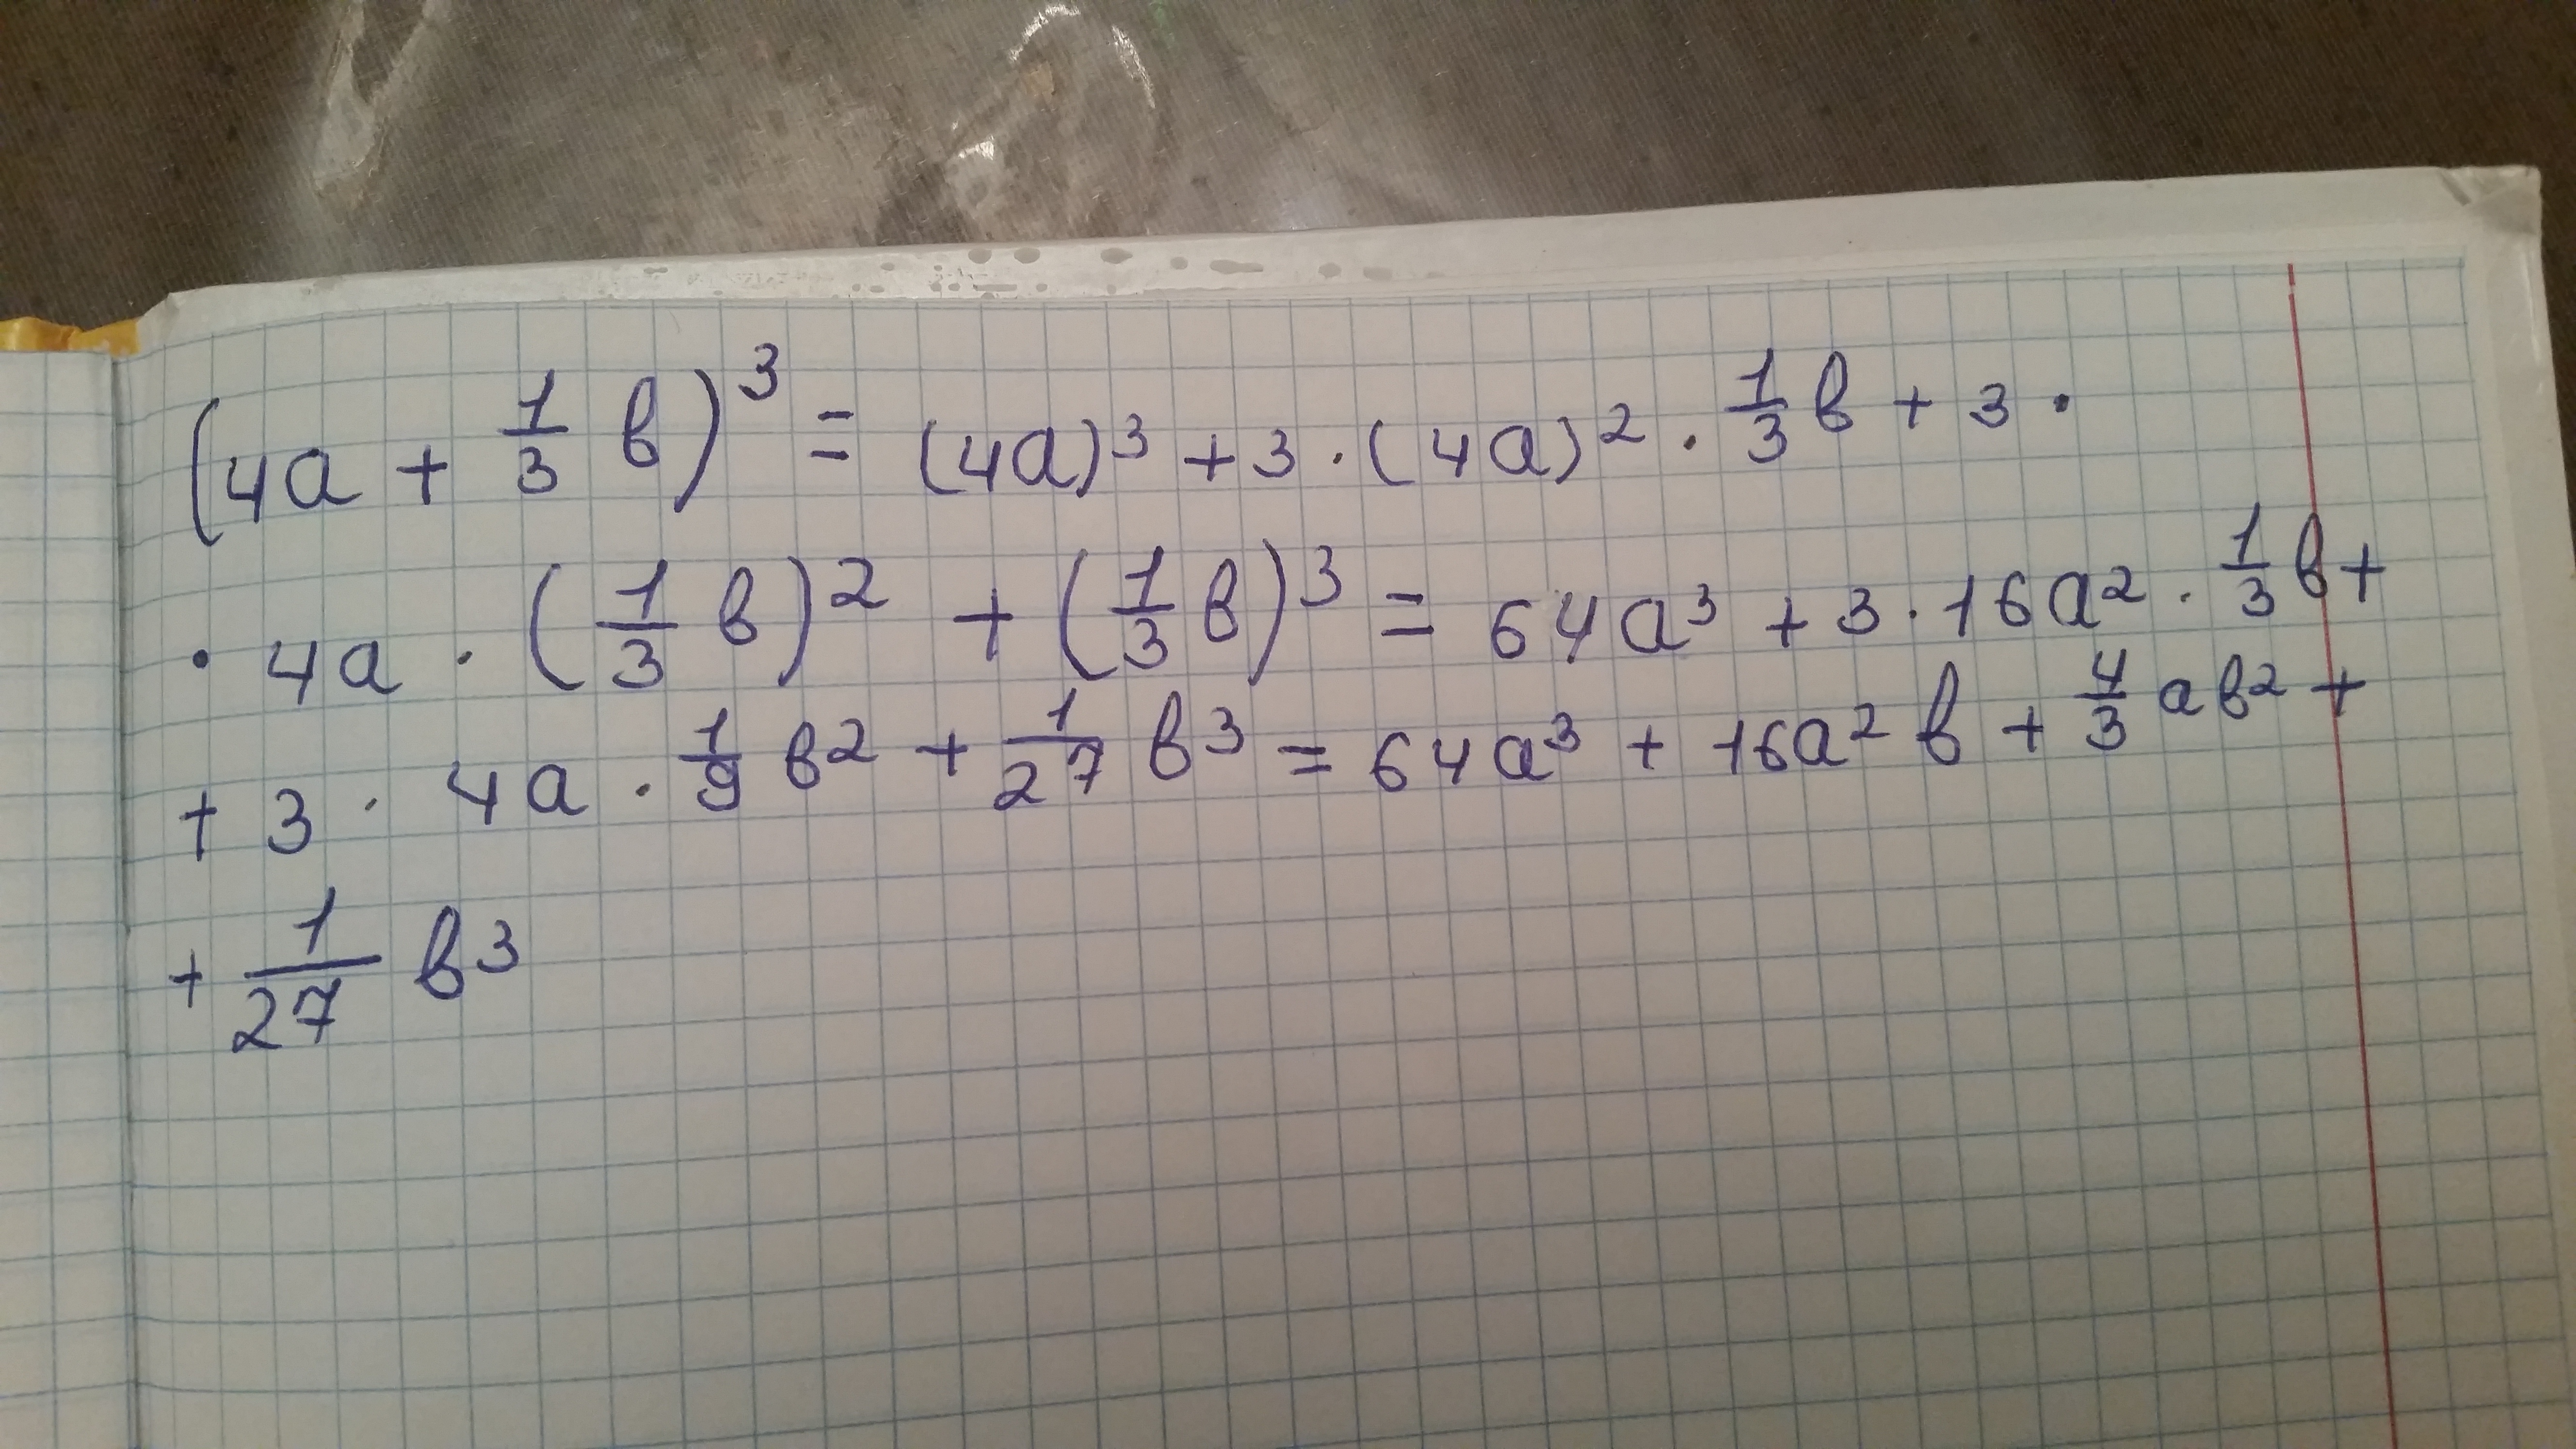 (4a + 1/3 в)³ = (4a)³ + 3 · (4a)² · 1/3 в + 3 ·
· 4a · (1/3 в)² + (1/3 в)³ = 64a³ + 3 · 16a² · 1/3 в +
+ 3 · 4a · 1/9 в² + 1/27 в³ = 64a³ + 16a² в + 4/3 aв² +
+ 1/27 в³